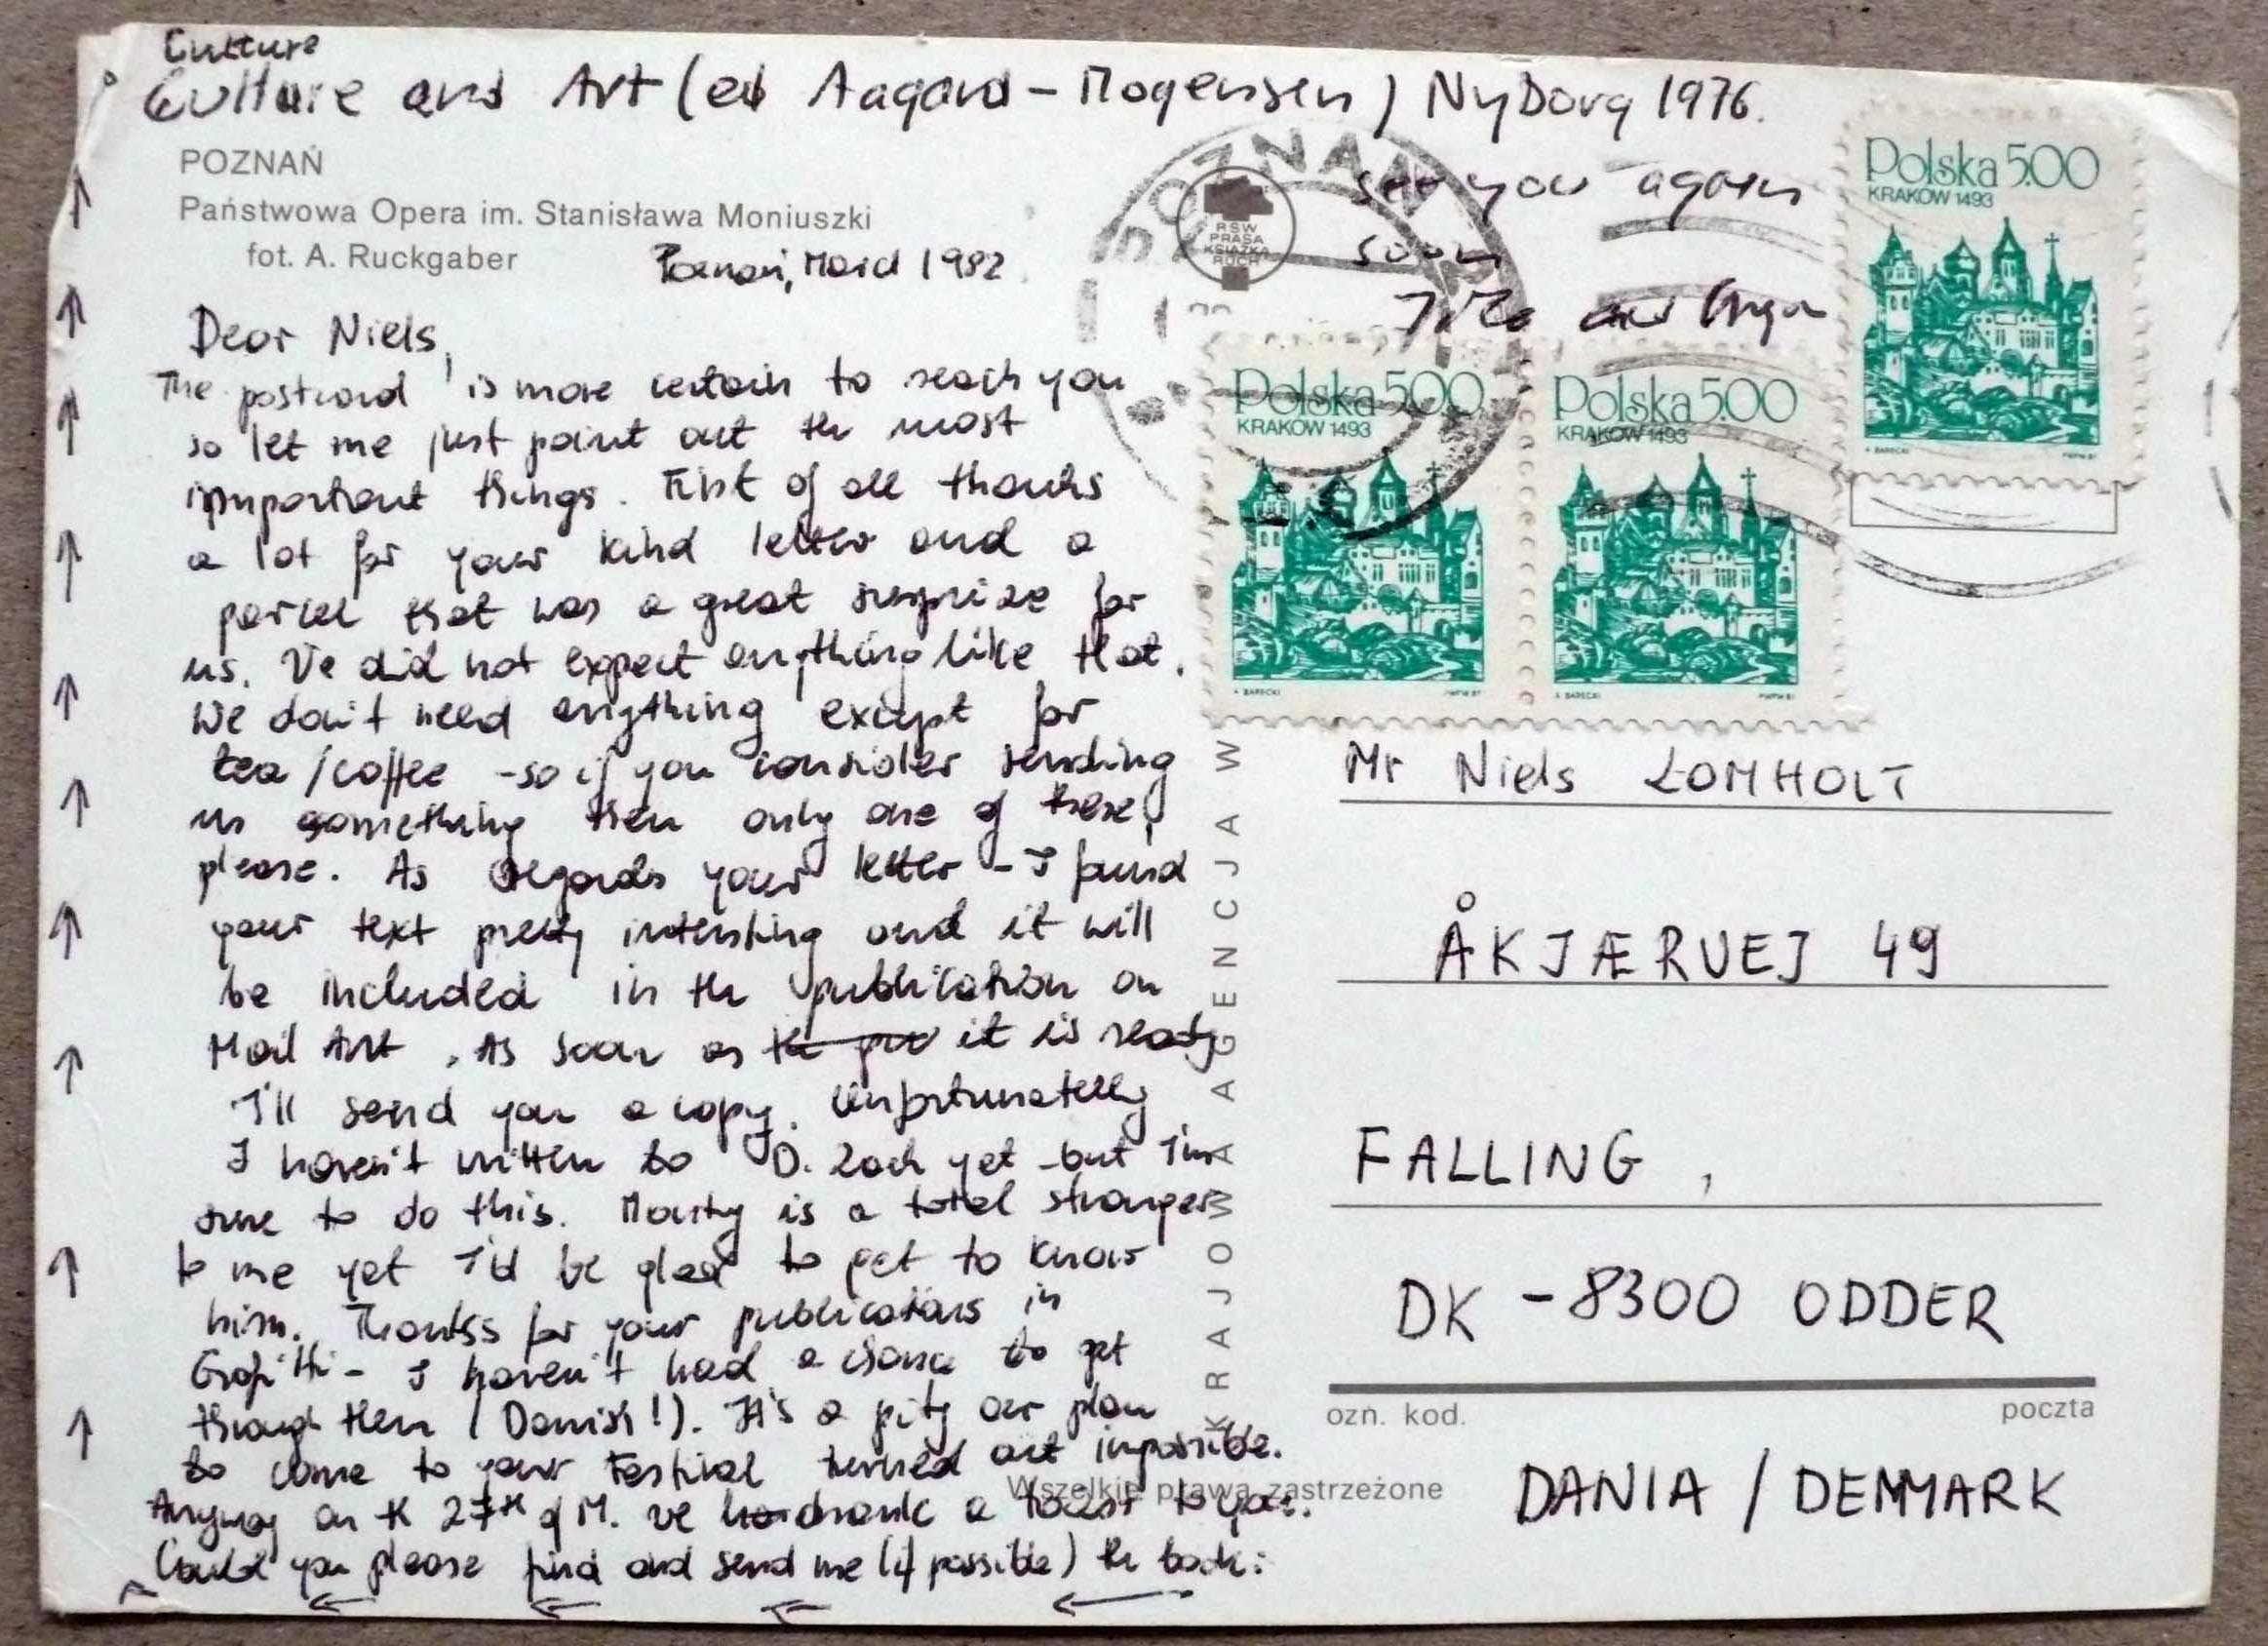 Culture
Culture and Art (ed Aagard-Mogensen) Nyborg 1976.
POZNAŃ
Państwowa Opera im. Stanisława Moniuszki
fot. A. Ruckgaber
Poznań, March 1982
see you again
soon
and
POZNAŃ
RSW
PRASA
KSIĄŻKA
RUCH
Polska 5.00
KRAKÓW 1493
Polska 5.00
KRAKÓW 1493
Polska 5.00
KRAKÓW 1493
A. BARECKI
PWPW 81
A. BARECKI
PWPW 81
A. BARECKI
PWPW 81
Dear Niels,
The postcard is more certain to reach you
so let me just point out the most
important things. First of all thanks
a lot for your kind letter and a
parcel that was a great surprize for
us. We did not expect anything like that.
We don't need anything except for
tea/coffee - so if you consider sending
us something then only one of these,
please. As regards your letter - I found
your text pretty intersting and it will
be included in the publication on
Mail Art. As soon as it is ready
I'll send you a copy. Unfortunatelly
I haven't written to D. Zack yet - but I'm
sure to do this. Marty is a total stranger
to me yet I'd be glad to get to know
him. Thanks for your publications in
Grafitti - I haven't had a chance to get
through them (Danish!). It's a pity our plan
to come to your Festival turned out impossible.
Anyway on the 27th of M. we drank a toast to you.
Could you please find and send me (if possible) the book:
KRAJOWA AGENCJA W
Wszelkie prawa zastrzeżone
Mr Niels LOMHOLT
ÅKJÆRVEJ 49
FALLING,
DK - 8300 ODDER
ozn. kod. poczta
DANIA / DENMARK